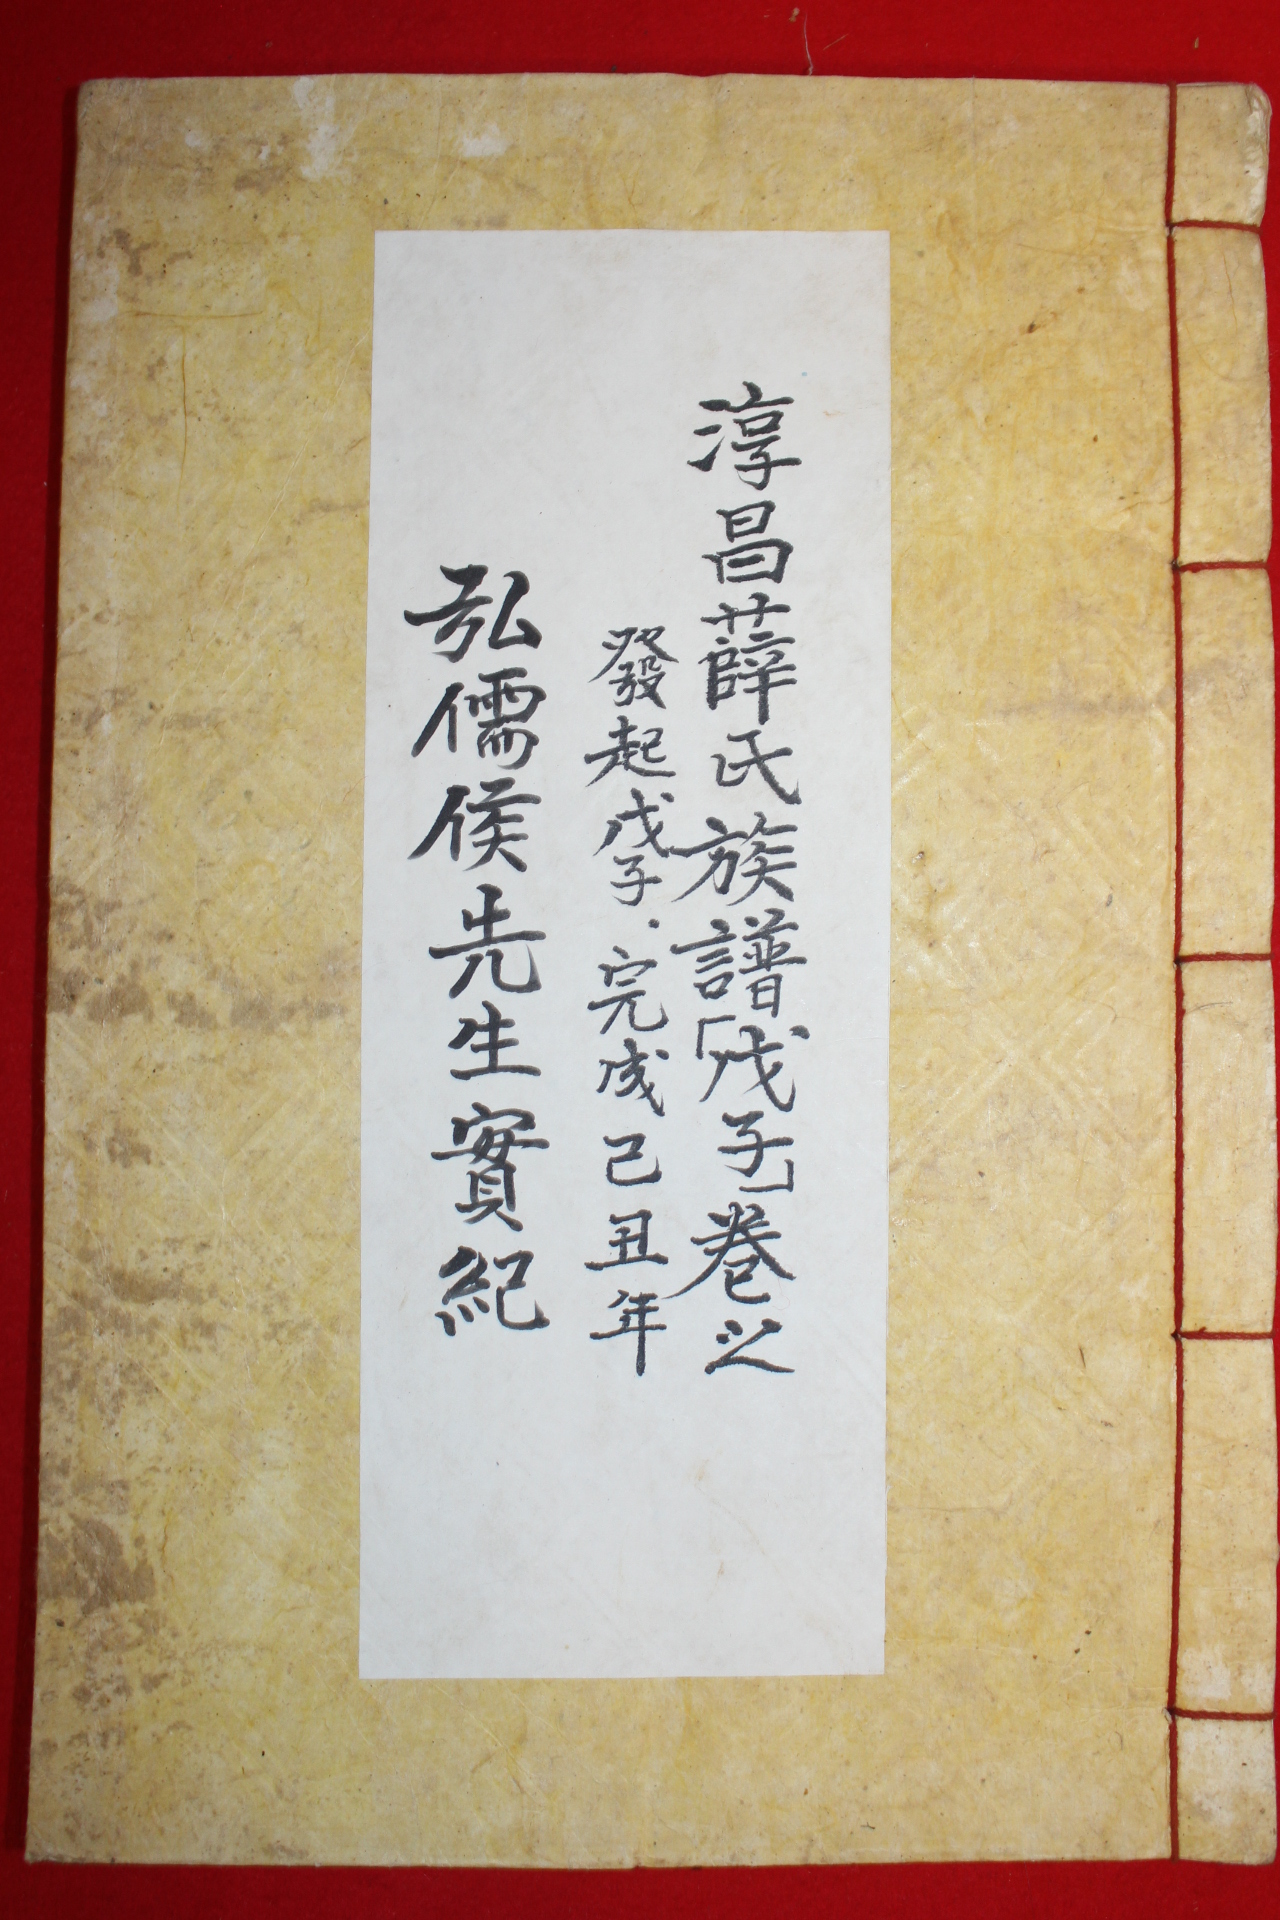 淳昌薛氏族譜「戊子」卷之
發起戊子.完成己丑年
弘儒侯先生實紀